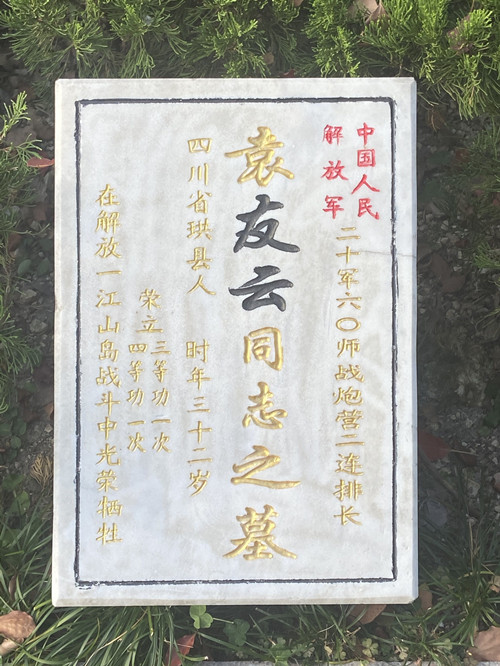 中国人民
解放军
二十军六〇师战炮营二连排长
袁友云同志之墓
四川省珙县人 时年三十二岁
荣立三等功一次
四等功一次
在解放一江山岛战斗中光荣牺牲